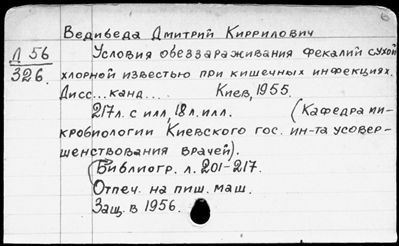 6
Ведибеда Дмитрий Киррилович
Д 56
326.
Условия обеззараживания фекалий сухой
хлорной известью при кишечных инфекциях.
Дисс... канд.... Киев, 1955.
217л. с илл, 18 л. илл. (Кафедра ми-
кробиологии Киевского гос. ин-та усовер-
шенствования врачей).
(Библиогр. л. 201-217.
Отпеч. на пиш. маш.
Защ. в 1956.